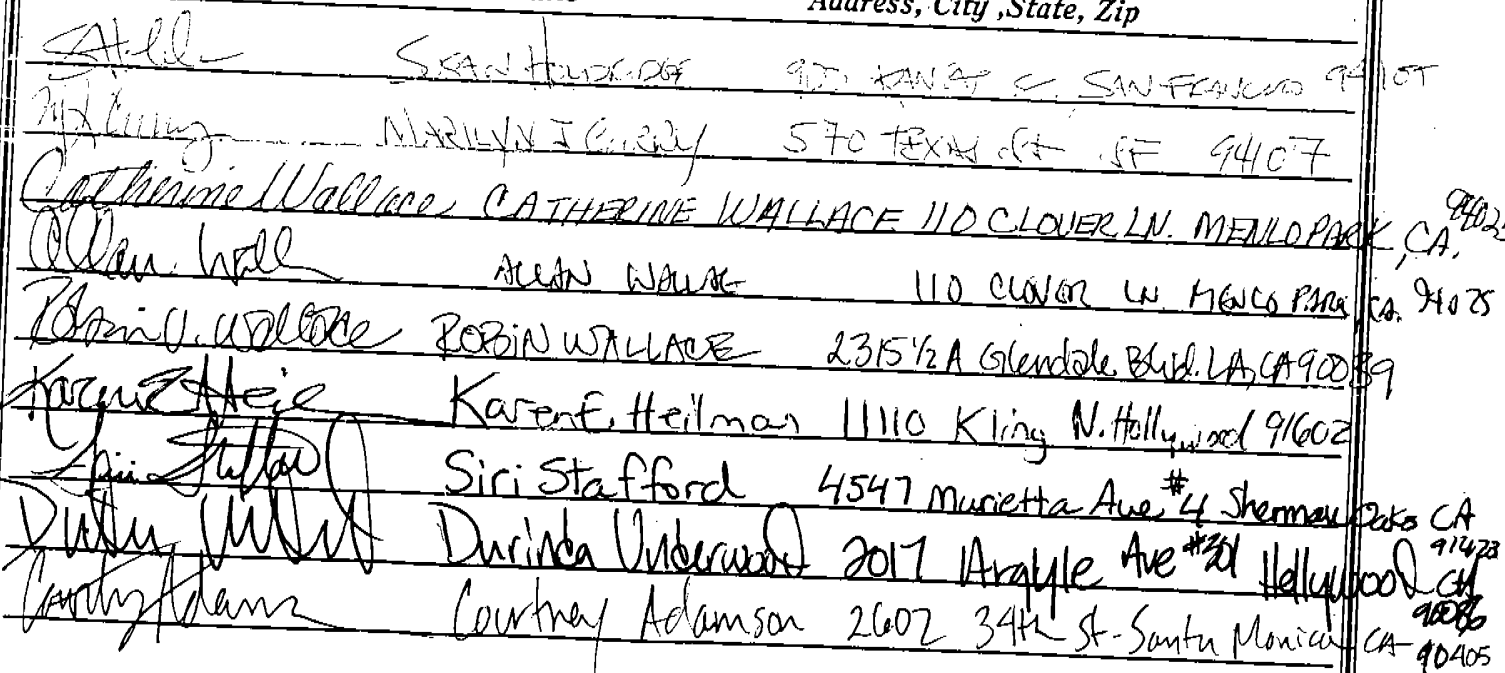 Address, City ,State, Zip
SAN FRANCISCO
MARILYN J 570 TEXAS St SF 94107
Catherine Wallace CATHERINE WALLACE 110 CLOVER LN. MENLO PARK, CA. 94025
Allan ALLAN WALLACE 110 CLOVER LN. MENLO PARK CA. 94025
Robin V. Wallace ROBIN WALLACE 2315 1/2 A Glendale Blvd. LA, CA 90039
Karen E. Heilman 11110 Kling N. Hollywood 91602
Siri Stafford Siri Stafford 4547 Murietta Ave #4 Sherman Oaks CA 91423
Durinda Underwood 2017 Argyle Ave #301 Hollywood CA
Courtney Adamson 2602 34th St - Santa Monica CA 90405